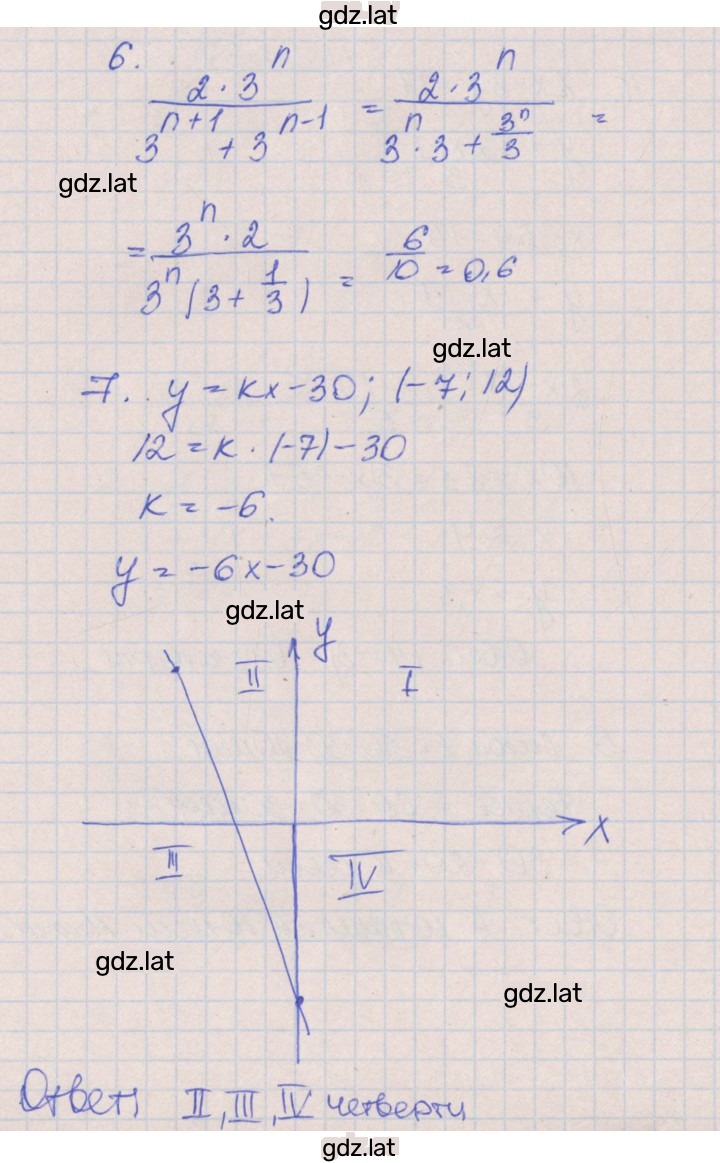 gdz.lat
6.
2 · 3^n / (3^(n+1) + 3^(n-1)) = 2 · 3^n / (3^n · 3 + 3^n/3) =
gdz.lat
= 3^n · 2 / (3^n (3 + 1/3)) = 6/10 = 0,6
gdz.lat
7. y = kx - 30; (-7; 12)
12 = k · (-7) - 30
k = -6.
y = -6x - 30
gdz.lat
y
II I
x
III IV
gdz.lat
gdz.lat
Ответ: II, III, IV четверти
gdz.lat